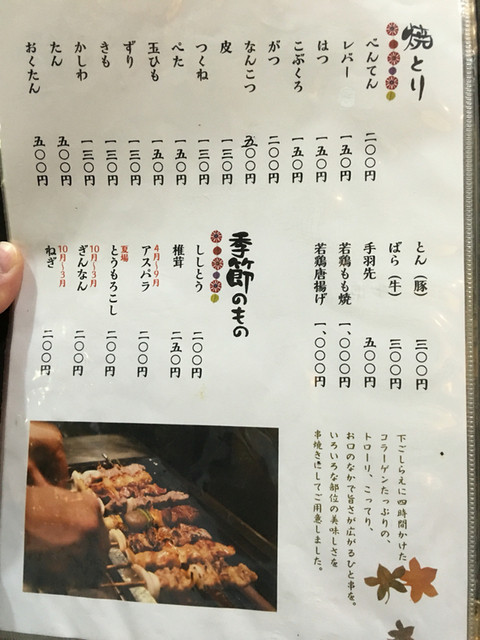 焼とり
べんてん 二〇〇円
レバー 一五〇円
はつ 一五〇円
こぶくろ 一五〇円
がつ 二〇〇円
なんこつ 五〇〇円
皮 一三〇円
つくね 一三〇円
ぺた 一五〇円
玉ひも 一五〇円
ずり 一三〇円
きも 一三〇円
かしわ 一三〇円
たん 五〇〇円
おくたん 五〇〇円
とん（豚） 三〇〇円
ばら（牛） 三〇〇円
手羽先 五〇〇円
若鶏もも焼 一、〇〇〇円
若鶏唐揚げ 一、〇〇〇円
季節のもの
ししとう 二〇〇円
椎茸 二五〇円
4月～9月
アスパラ 二〇〇円
夏場
とうもろこし 二〇〇円
10月～3月
ぎんなん 二〇〇円
10月～3月
ねぎ 二〇〇円
下ごしらえに四時間かけた
コラーゲンたっぷりの、
トローリ、こってり、
お口のなかで旨さが広がるひと串を。
いろいろな部位の美味しさを
串焼きにしてご用意しました。